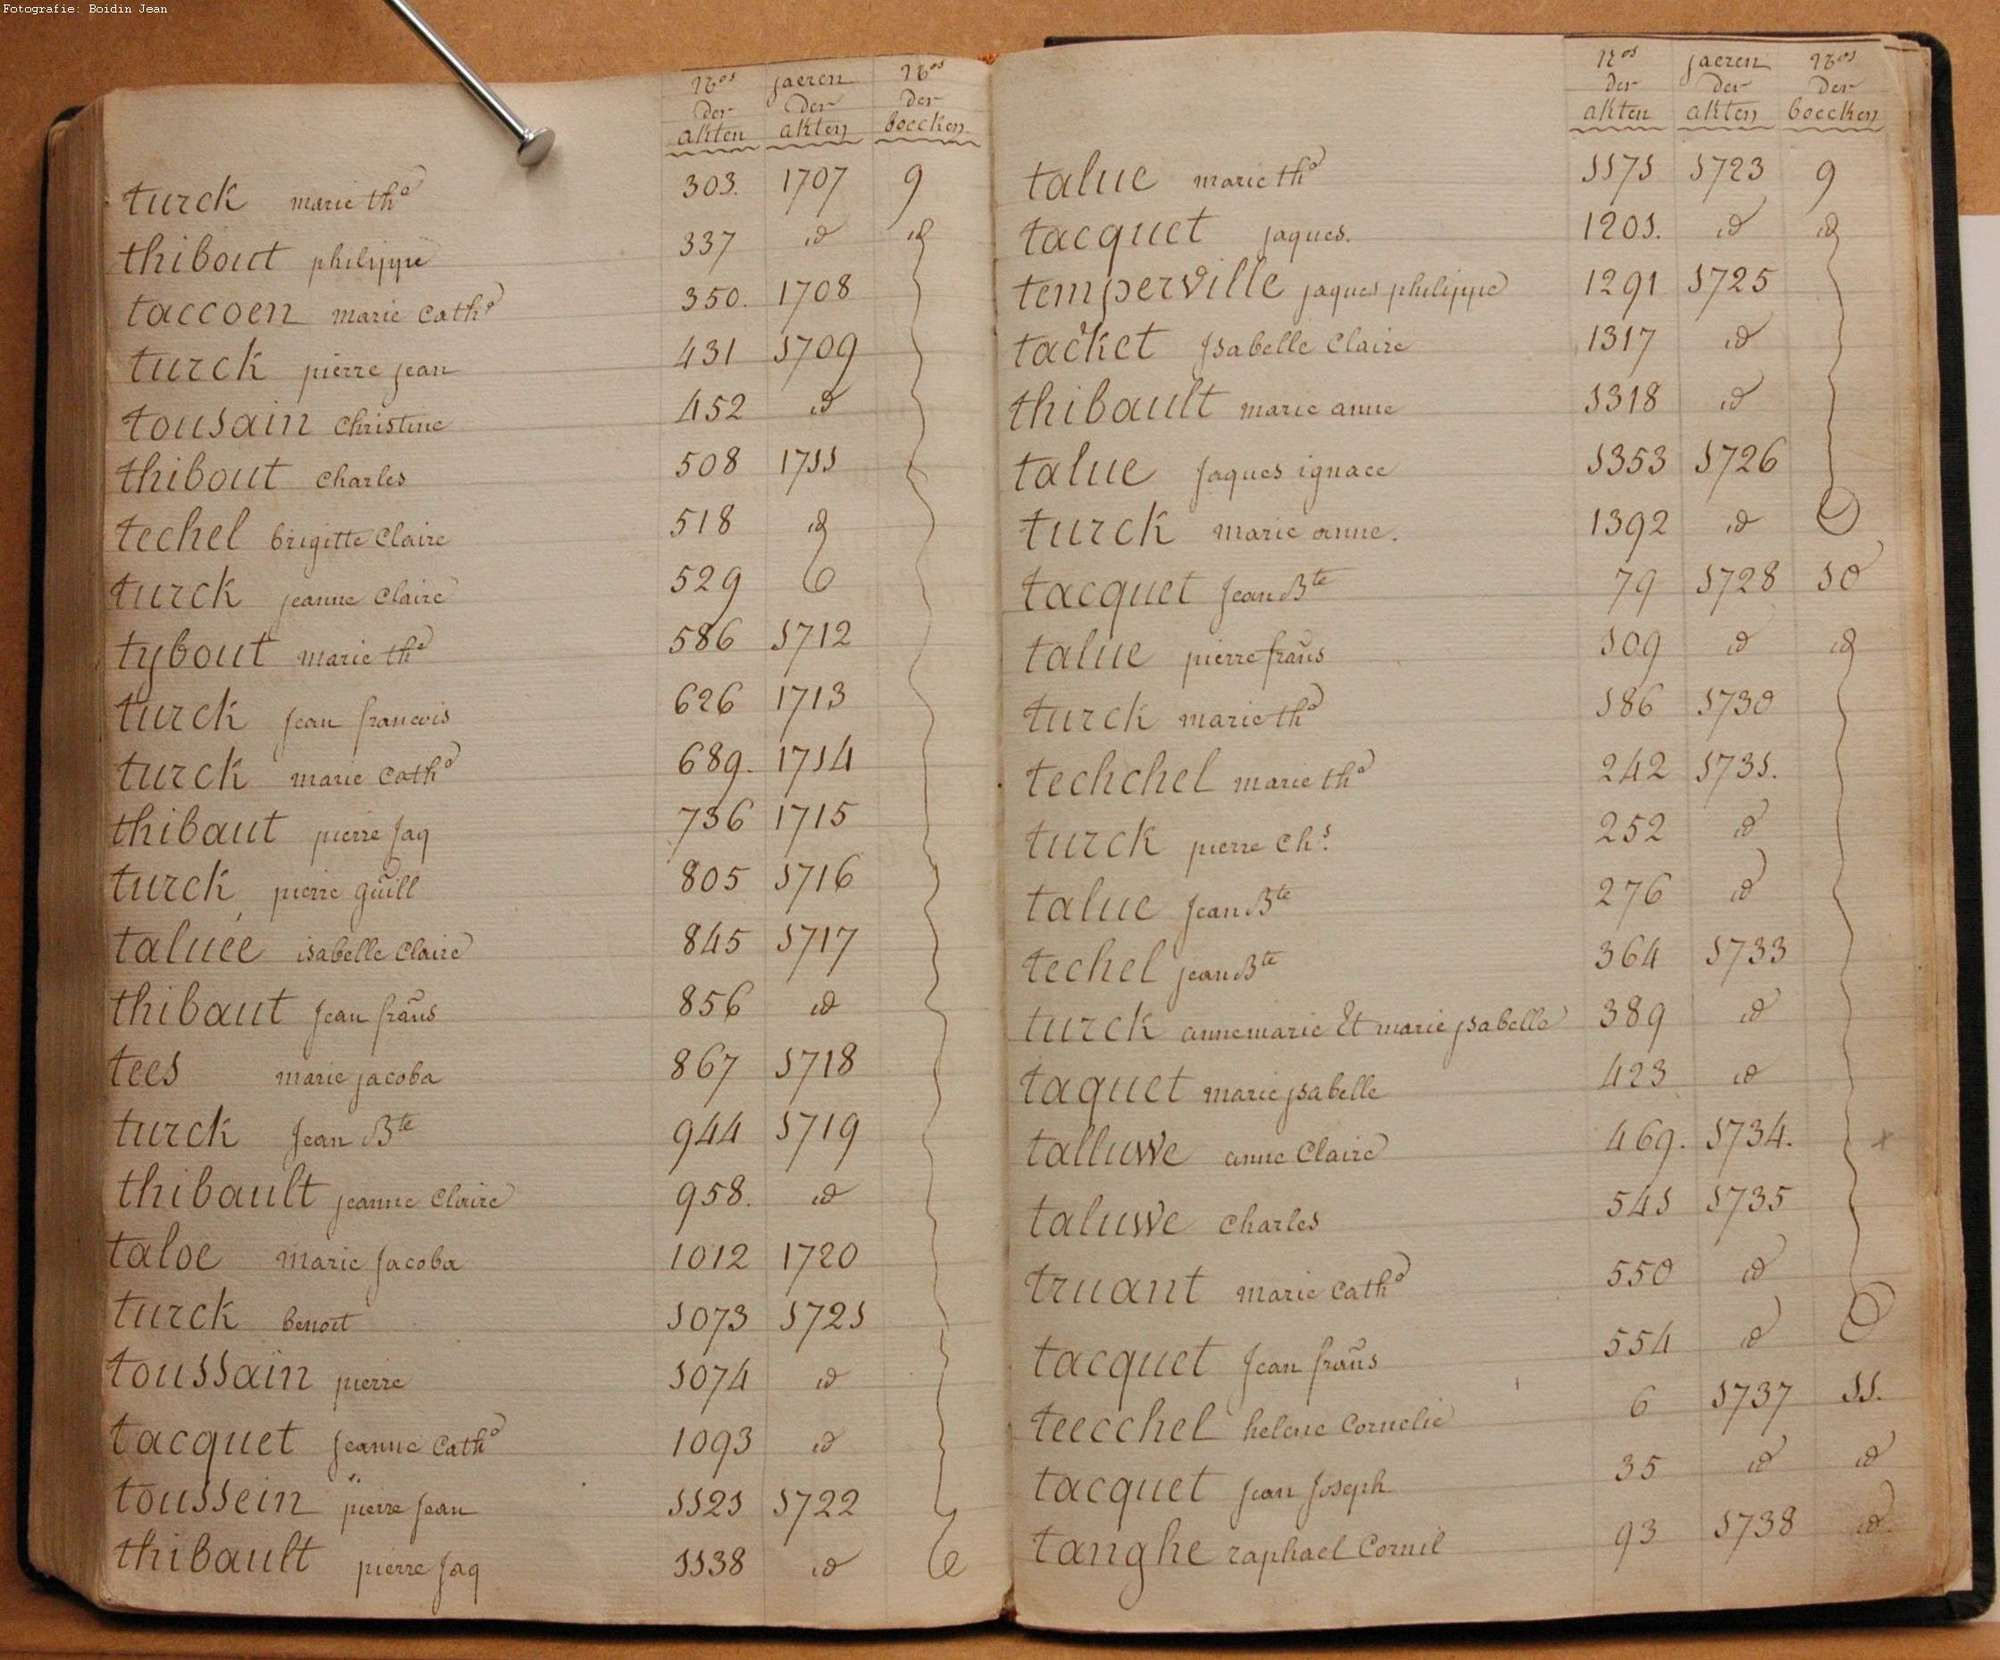 Fotografie: Boidin Jean
Nos jaeren Nos
der der der
akten akten boecken
turck marie tha 303. 1707 9
thibout philippe 337 id id
taccoen marie Catha 350. 1708
turck pierre jean 431 1709
tousain Christine 452 id
thibout Charles 508 1711
techel brigitte Claire 518 id
turck jeanne Claire 529
tybout marie tha 586 1712
turck jean francois 626 1713
turck marie Catha 689. 1714
thibaut pierre jaq 736 1715
turck pierre guill 805 1716
taluée isabelle Claire 845 1717
thibaut jean frans 856 id
tees marie jacoba 867 1718
turck jean Bte 944 1719
thibault jeanne Claire 958. id
taloe marie jacoba 1012 1720
turck benoit 1073 1721
toussain pierre 1074 id
tacquet jeanne Catha 1093 id
toussein pierre jean 1121 1722
thibault pierre jaq 1138 id
Nos jaeren Nos
der der der
akten akten boecken
talue marie tha 1171 1723 9
tacquet jaques. 1201. id id
temperville jaques philippe 1291 1725
tacket jsabelle Claire 1317 id
thibault marie anne 1318 id
talue jaques ignace 1353 1726
turck marie anne. 1392 id
tacquet jean Bte 79 1728 10
talue pierre frans 109 id id
turck marie tha 186 1730
techchel marie tha 242 1731.
turck pierre Chs. 252 id
talue jean Bte 276 id
techel jean Bte 364 1733
turck anne marie Et marie jsabelle 389 id
taquet marie jsabelle 423 id
talluwe anne Claire 469. 1734.
taluwe Charles 541 1735
truant marie Catha 550 id
tacquet jean frans 554 id
teecchel helene Cornelie 6 1737 11.
tacquet jean joseph 35 id id
tanghe raphael Cornil 93 1738 id